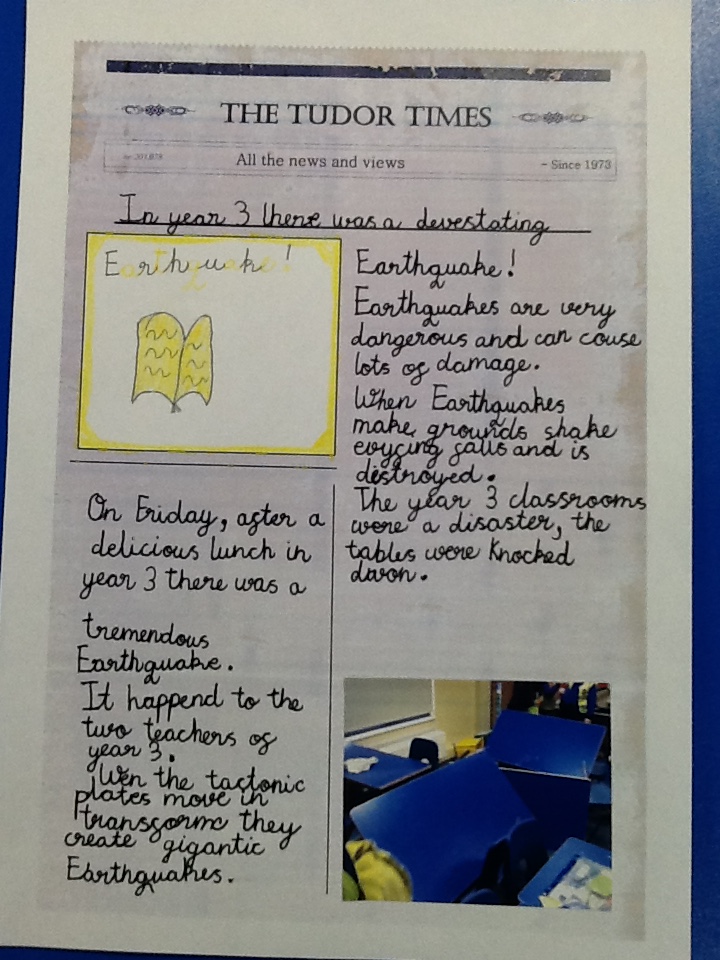 THE TUDOR TIMES
All the news and views
~ Since 1973
In year 3 there was a devestating
Earthquake!
Earthquake!
Earthquakes are very
dangerous and can couse
lots of damage.
When Earthquakes
make grounds shake
evycing falls and is
destroyed.
The year 3 classrooms
were a disaster, the
tables were knocked
dwon.
On Friday, after a
delicious lunch in
year 3 there was a
tremendous
Earthquake.
It happend to the
two teachers of
year 3.
Wen the tactonic
plates move in
transformc they
create gigantic
Earthquakes.